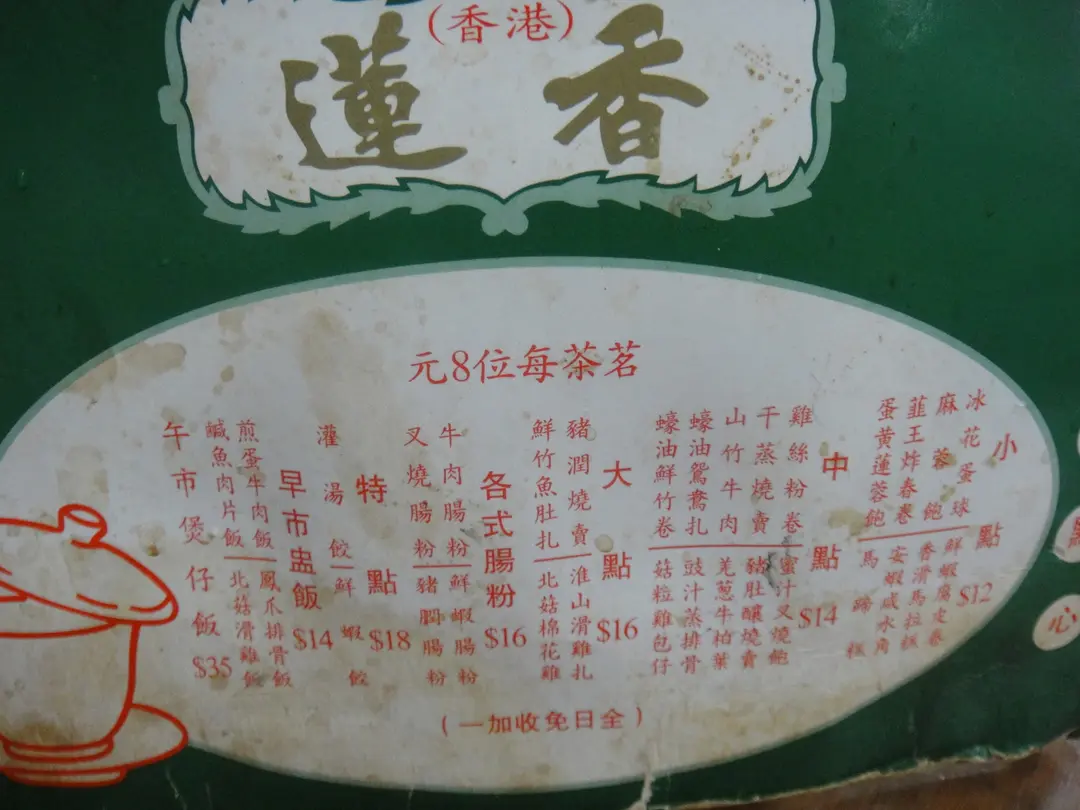 (香港)
蓮香
茗茶每位8元
小點 $12
冰花蛋球
麻蓉飽
韮王炸春卷
蛋黃蓮蓉飽
鮮蝦腐皮卷
香滑馬拉糕
安蝦咸水角
馬蹄糕
中點 $14
雞絲粉卷
干蒸燒賣
山竹牛肉
蠔油鴛鴦扎
蠔油鮮竹卷
蜜汁叉燒飽
豬肚釀燒賣
羌葱牛柏葉
豉汁蒸排骨
菇粒雞包仔
大點 $16
豬潤燒賣
鮮竹魚肚扎
淮山滑雞扎
北菇棉花雞
各式腸粉 $16
牛肉腸粉
叉燒腸粉
鮮蝦腸粉
豬膶腸粉
特點 $18
灌湯餃
鮮蝦餃
早市盅飯 $14
煎蛋牛肉飯
鹹魚肉片飯
鳳爪排骨飯
北菇滑雞飯
午市煲仔飯 $35
(全日免收加一)
點心